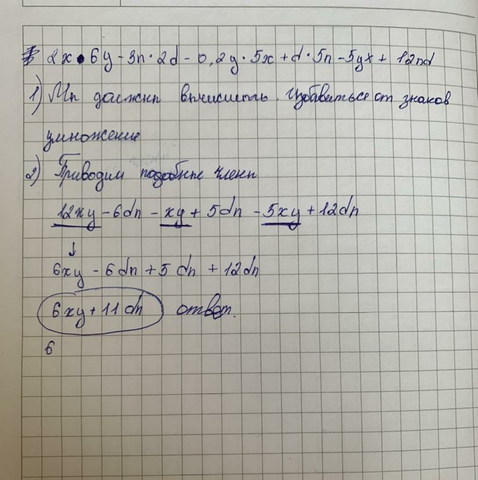 2x • 6y - 3n · 2d - 0,2y · 5x + d · 5n - 5yx + 12nd
1) Мы должны вычислить избавиться от знаков
умножение
2) Приводим подобные члены
12xy - 6dn - xy + 5dn - 5xy + 12dn
↓
6xy - 6dn + 5dn + 12dn
6xy + 11dn ответ.
6